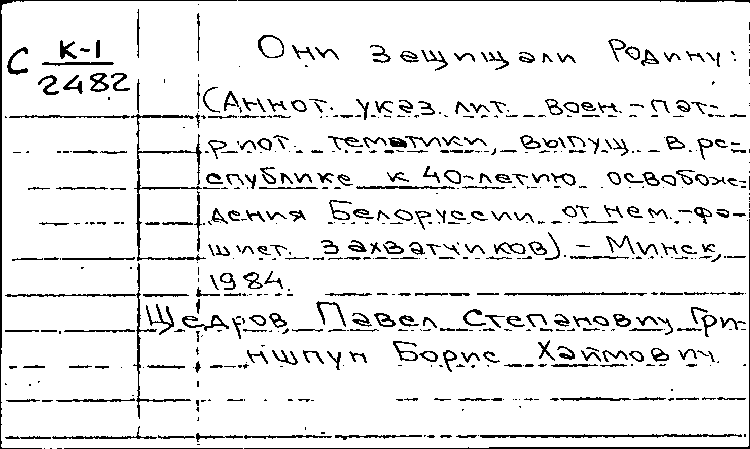 С К-1
2482
Они защищали Родину:
(Аннот. указ. лит. воен.-пат-
риот. тематики, выпущ. в ре-
спублике к 40-летию освобож-
дения Белоруссии от нем.-фа-
шист. захватчиков) - Минск,
1984.
Щедров, Павел Степанович, Гри-
ншпун Борис Хаймович